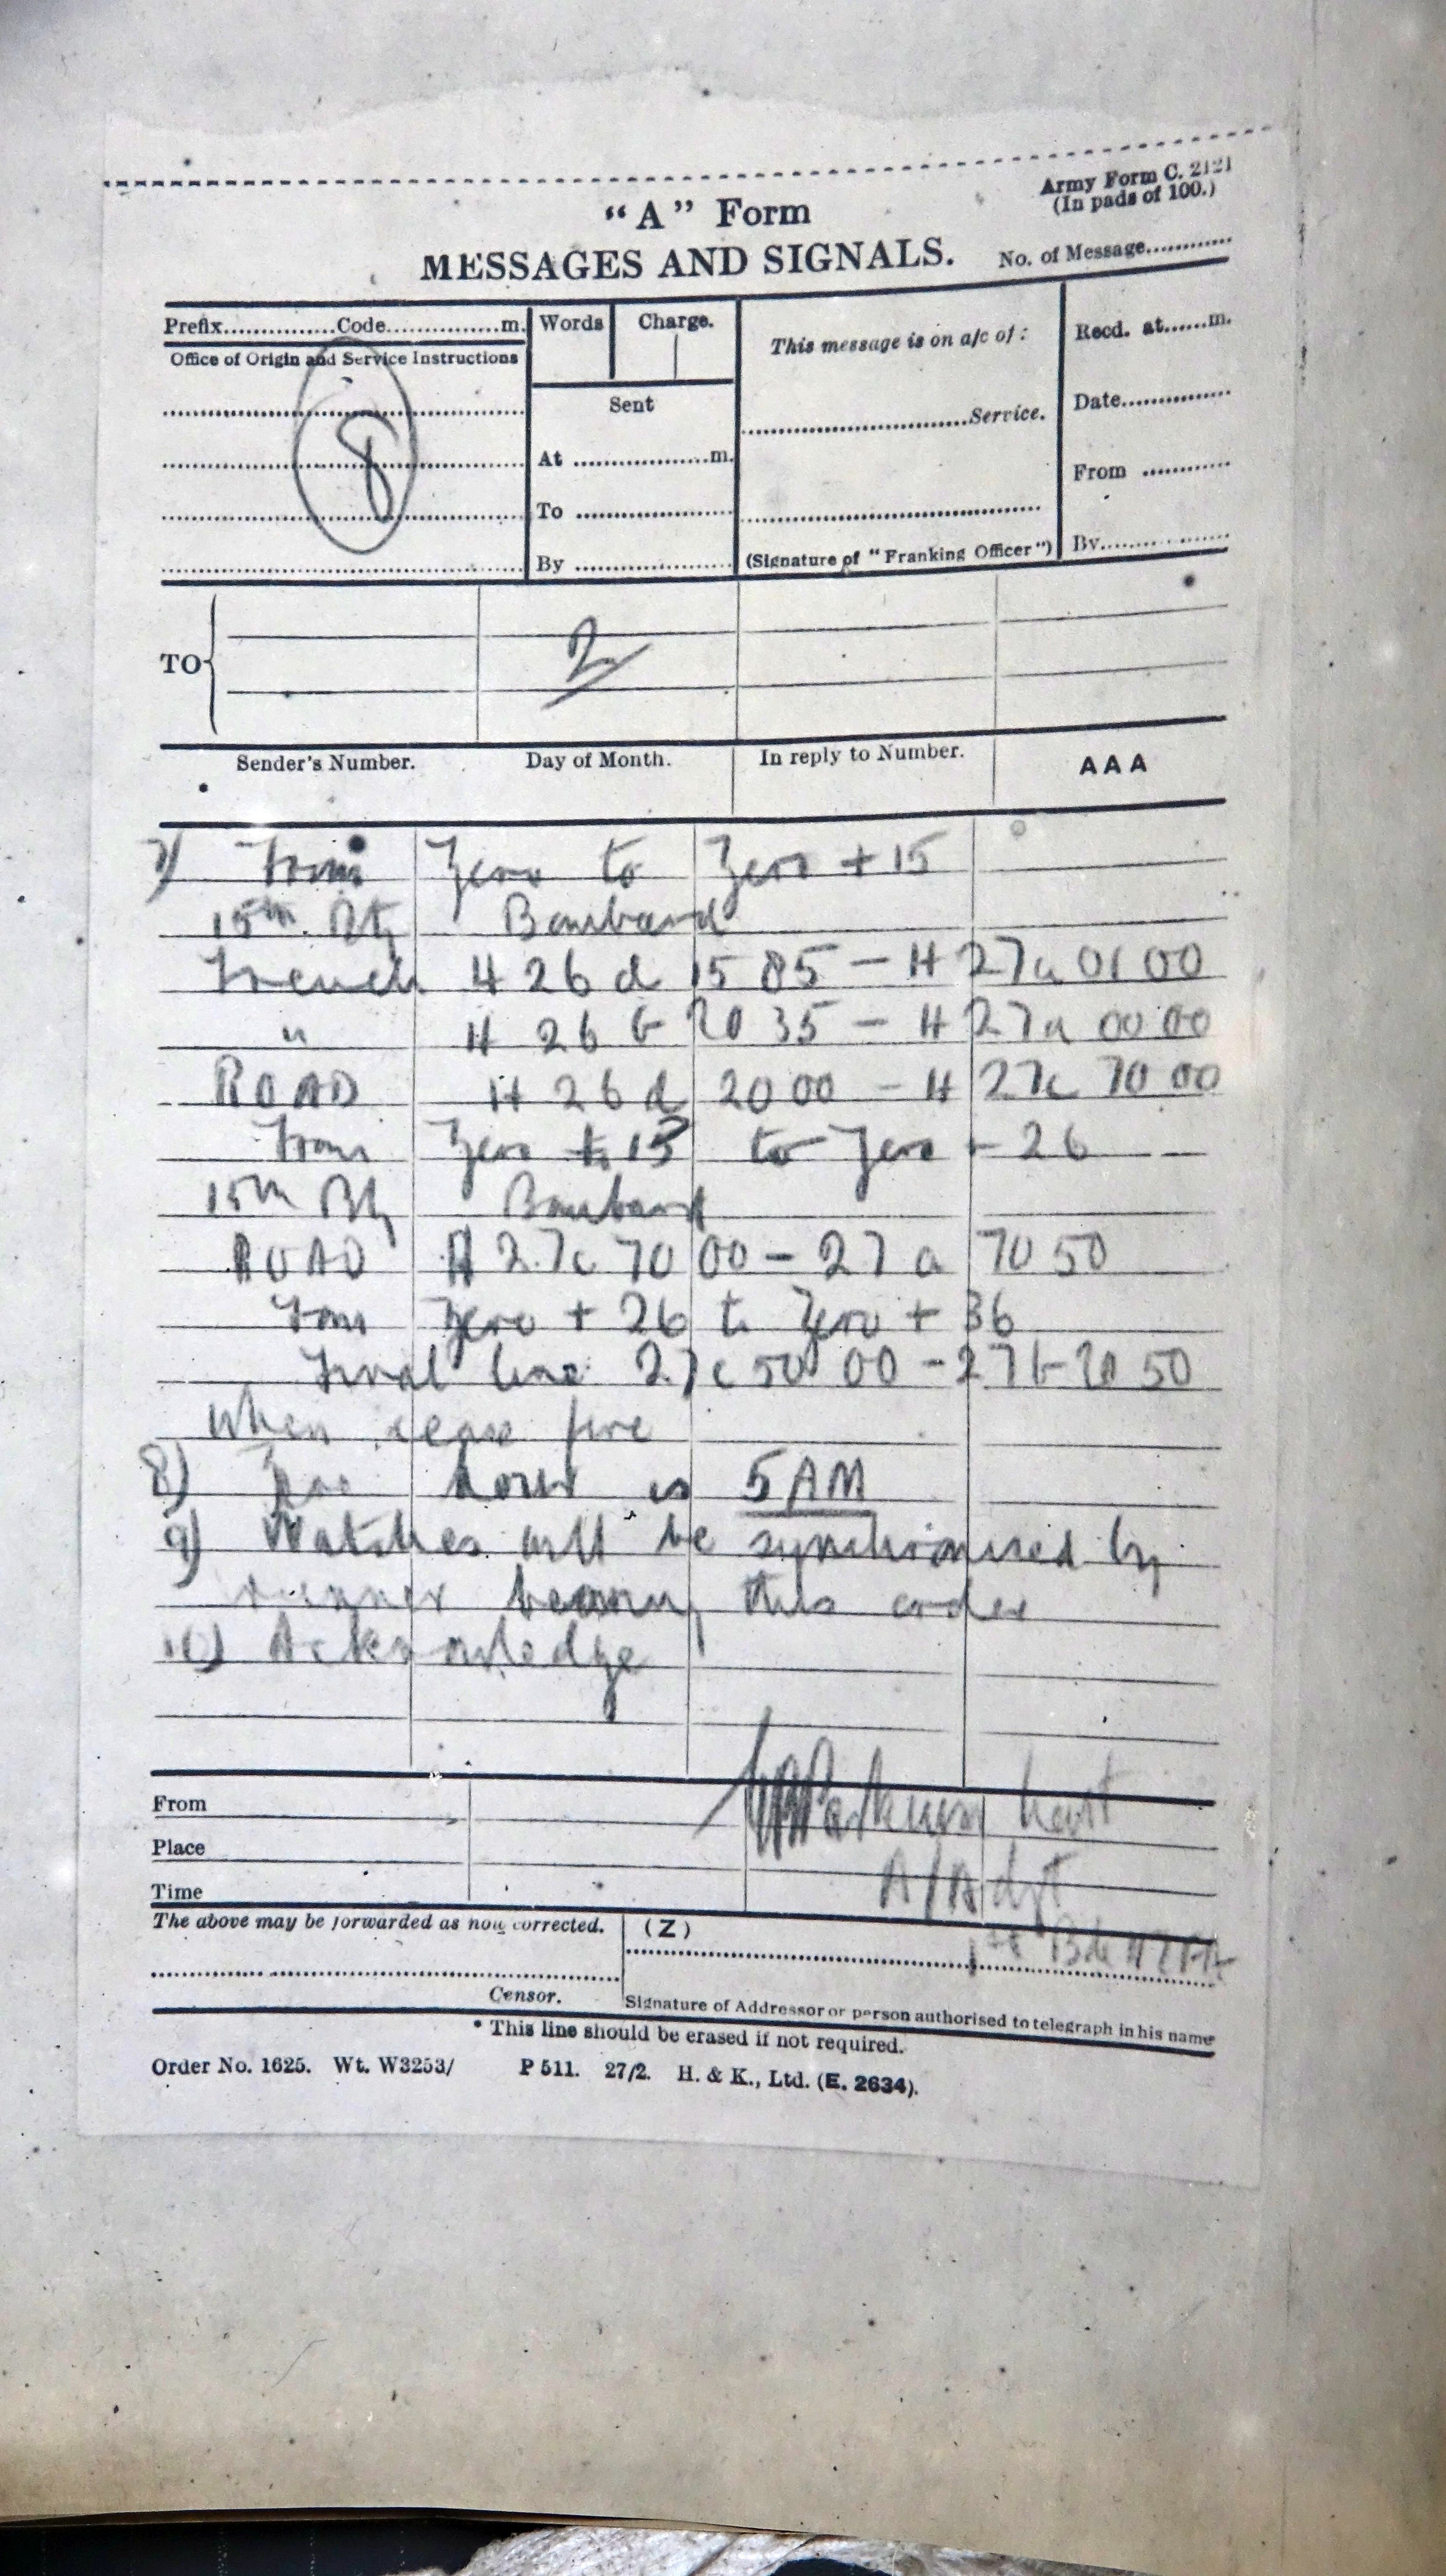 Army Form C. 2121
(In pads of 100.)
"A" Form
MESSAGES AND SIGNALS.
No. of Message............
Prefix...............Code...............m.
Words
Charge.
This message is on a/c of :
Recd. at......m.
Office of Origin and Service Instructions
8
Sent
At ..................m.
To .....................
By .....................
..............................Service.
(Signature of "Franking Officer")
Date...............
From ............
By..................
TO
2
Sender's Number.
Day of Month.
In reply to Number.
AAA
7) From Zero to Zero + 15
15th. Bty Bombard
Trench H 26 d 15 85 — H 27a 01 00
" H 26 b 20 35 — H 27a 00 00
ROAD H 26 d 20 00 — H 27c 70 00
From Zero + 15 to Zero + 26
15th Bty Bombard
ROAD H 27c 70 00 — 27 a 70 50
From Zero + 26 to Zero + 36
Final line 27c 50 00 - 27b 20 50
When cease fire
8) Zero hour is 5 AM
9) Watches will be synchronised by
runner bearing this order
10) Acknowledge
From
Place
Time
Parkinson Lieut
A/Adjt
Bde NZFA
The above may be forwarded as now corrected.
(Z)
Censor.
Signature of Addressor or person authorised to telegraph in his name
* This line should be erased if not required.
Order No. 1625. Wt. W3253/ P 511. 27/2. H. & K., Ltd. (E. 2634).